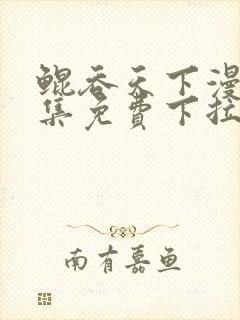 鲲吞天下漫
集免费下拉
南有嘉鱼